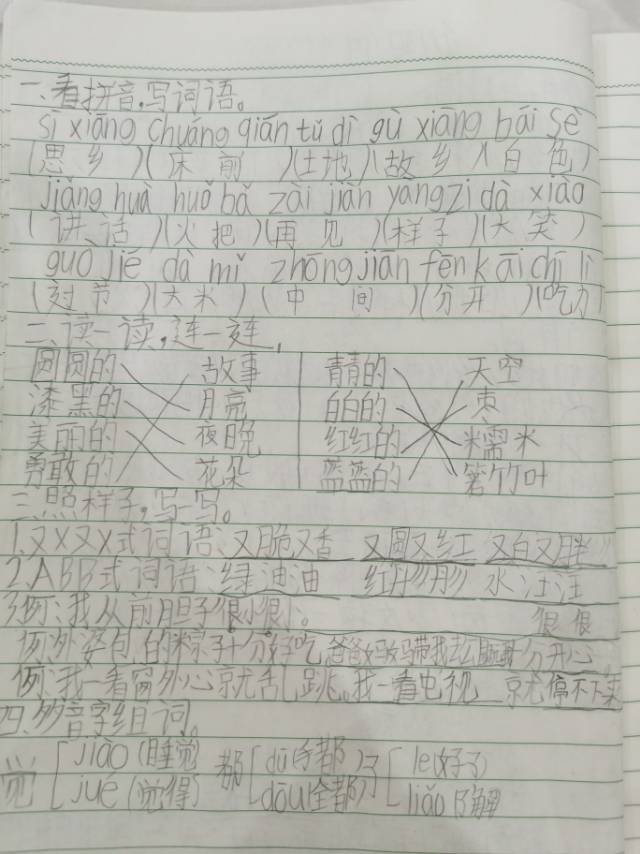 一、看拼音,写词语。
sī xiāng chuáng qián tǔ dì gù xiāng bái sè
(思乡)(床前)(土地)(故乡)(白色)
jiǎng huà huǒ bǎ zài jiàn yangzi dà xiào
(讲话)(火把)(再见)(样子)(大笑)
guò jié dà mǐ zhōng jiān fēn kāi chī lì
(过节)(大米)(中间)(分开)(吃力)
二、读一读,连一连,
圆圆的 故事 青青的 天空
漆黑的 月亮 白白的 枣
美丽的 夜晚 红红的 糯米
勇敢的 花朵 蓝蓝的 箬竹叶
三、照样子,写一写。
1.又X又X式词语:又脆又香 又圆又红 又白又胖
2.ABB式词语:绿油油 红彤彤 水汪汪
例:我从前胆子很小很小。 很 很
例:外婆包的粽子十分好吃 爸爸妈妈带我去 分开心
例:我一看窗外心就乱跳。我一看电视 就停不下来
四、多音字组词。
觉 jiào (睡觉) 都 dū 都 了 le(好了)
jué (觉得) dōu(全都) liǎo 了解